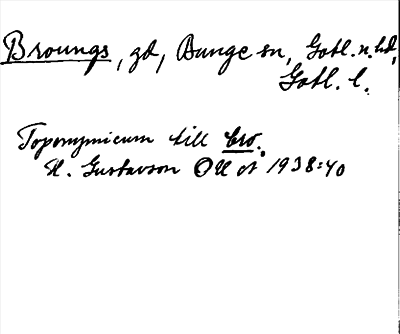 Broungs, gd, Bunge sn, Gotl. n. hd,
Gotl. l.
Toponymicum till bro.
H. Gustavson OUÅ 1938:40